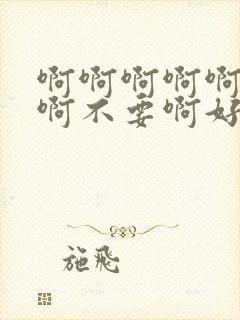 啊啊啊啊啊
啊不要啊好
施飛